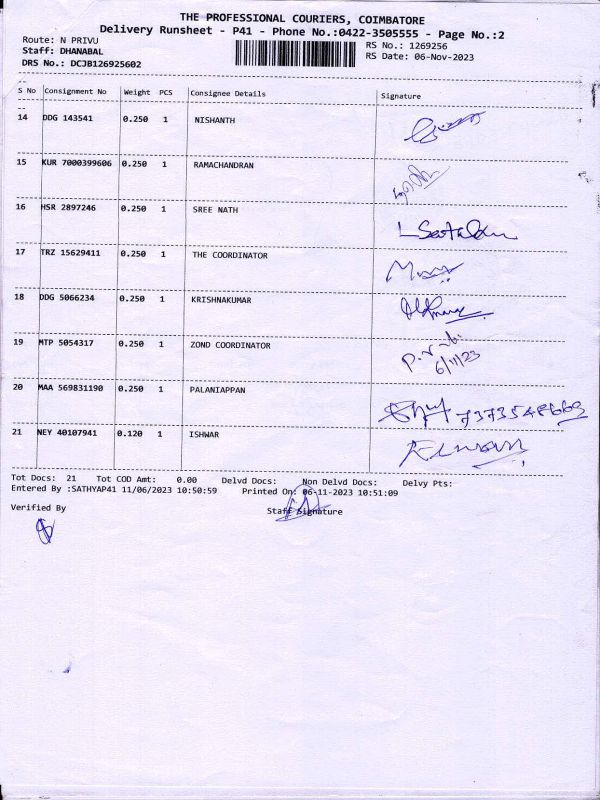 THE PROFESSIONAL COURIERS, COIMBATORE
Delivery Runsheet - P41 - Phone No.:0422-3505555 - Page No.:2
Route: N PRIVU
RS No.: 1269256
Staff: DHANABAL
RS Date: 06-Nov-2023
DRS No.: DCJB126925602
S No Consignment No Weight PCS Consignee Details Signature
14 DDG 143541 0.250 1 NISHANTH
15 KUR 7000399606 0.250 1 RAMACHANDRAN
16 HSR 2897246 0.250 1 SREE NATH
17 TRZ 15629411 0.250 1 THE COORDINATOR
18 DDG 5066234 0.250 1 KRISHNAKUMAR
19 MTP 5054317 0.250 1 ZOND COORDINATOR
6/11/23
20 MAA 569831190 0.250 1 PALANIAPPAN 7373548669
21 NEY 40107941 0.120 1 ISHWAR
Tot Docs: 21 Tot COD Amt: 0.00 Delvd Docs: Non Delvd Docs: Delvy Pts:
Entered By :SATHYAP41 11/06/2023 10:50:59 Printed On: 06-11-2023 10:51:09
Verified By Staff Signature